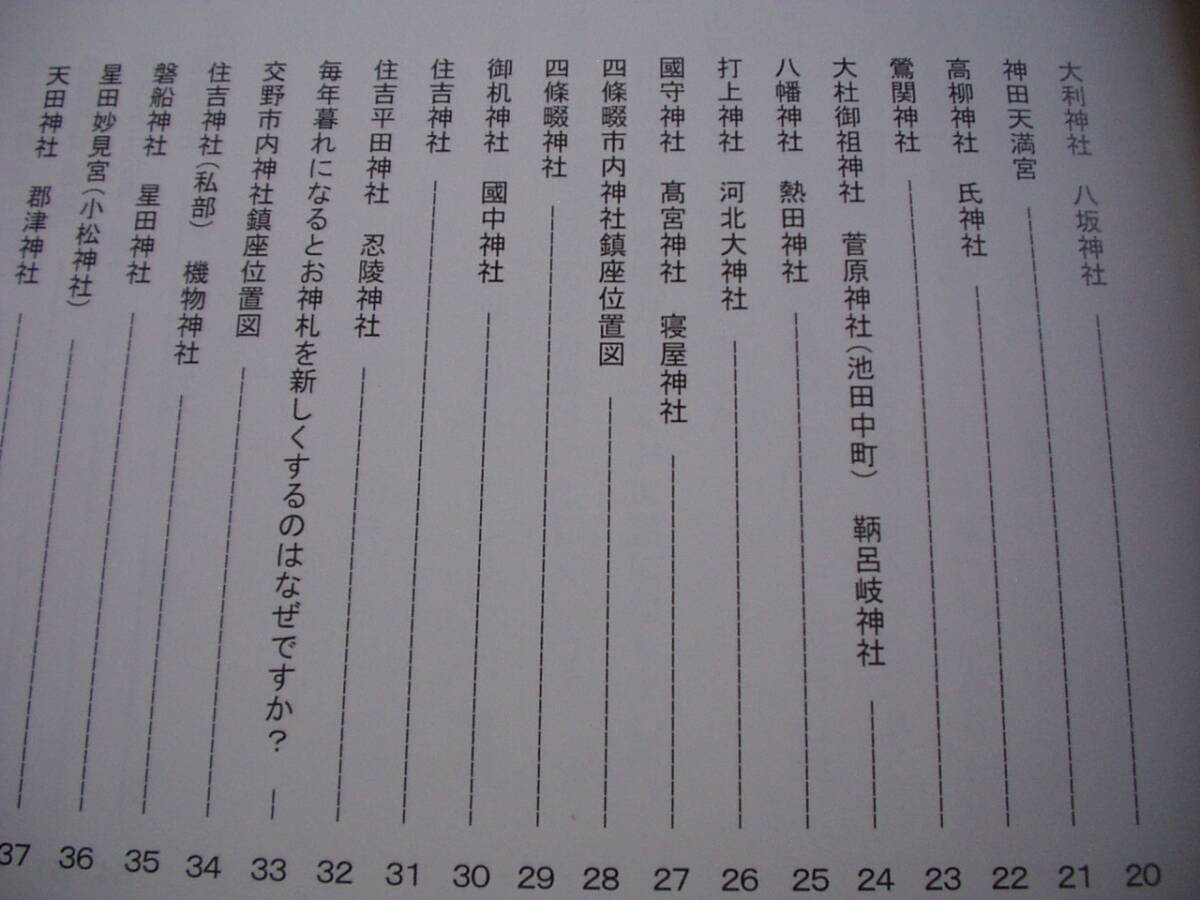 大利神社　八坂神社 20
神田天満宮 21
高柳神社　氏神社 22
鶯関神社 23
大杜御祖神社　菅原神社（池田中町）　鞆呂岐神社 24
八幡神社　熱田神社 25
打上神社　河北大神社 26
國守神社　髙宮神社　寝屋神社 27
四條畷市内神社鎮座位置図 28
四條畷神社 29
御机神社　國中神社 30
住吉神社 31
住吉平田神社　忍陵神社 32
毎年暮れになるとお神札を新しくするのはなぜですか？ 33
交野市内神社鎮座位置図 34
住吉神社（私部）　機物神社 35
磐船神社　星田神社 36
星田妙見宮（小松神社） 37
天田神社　郡津神社